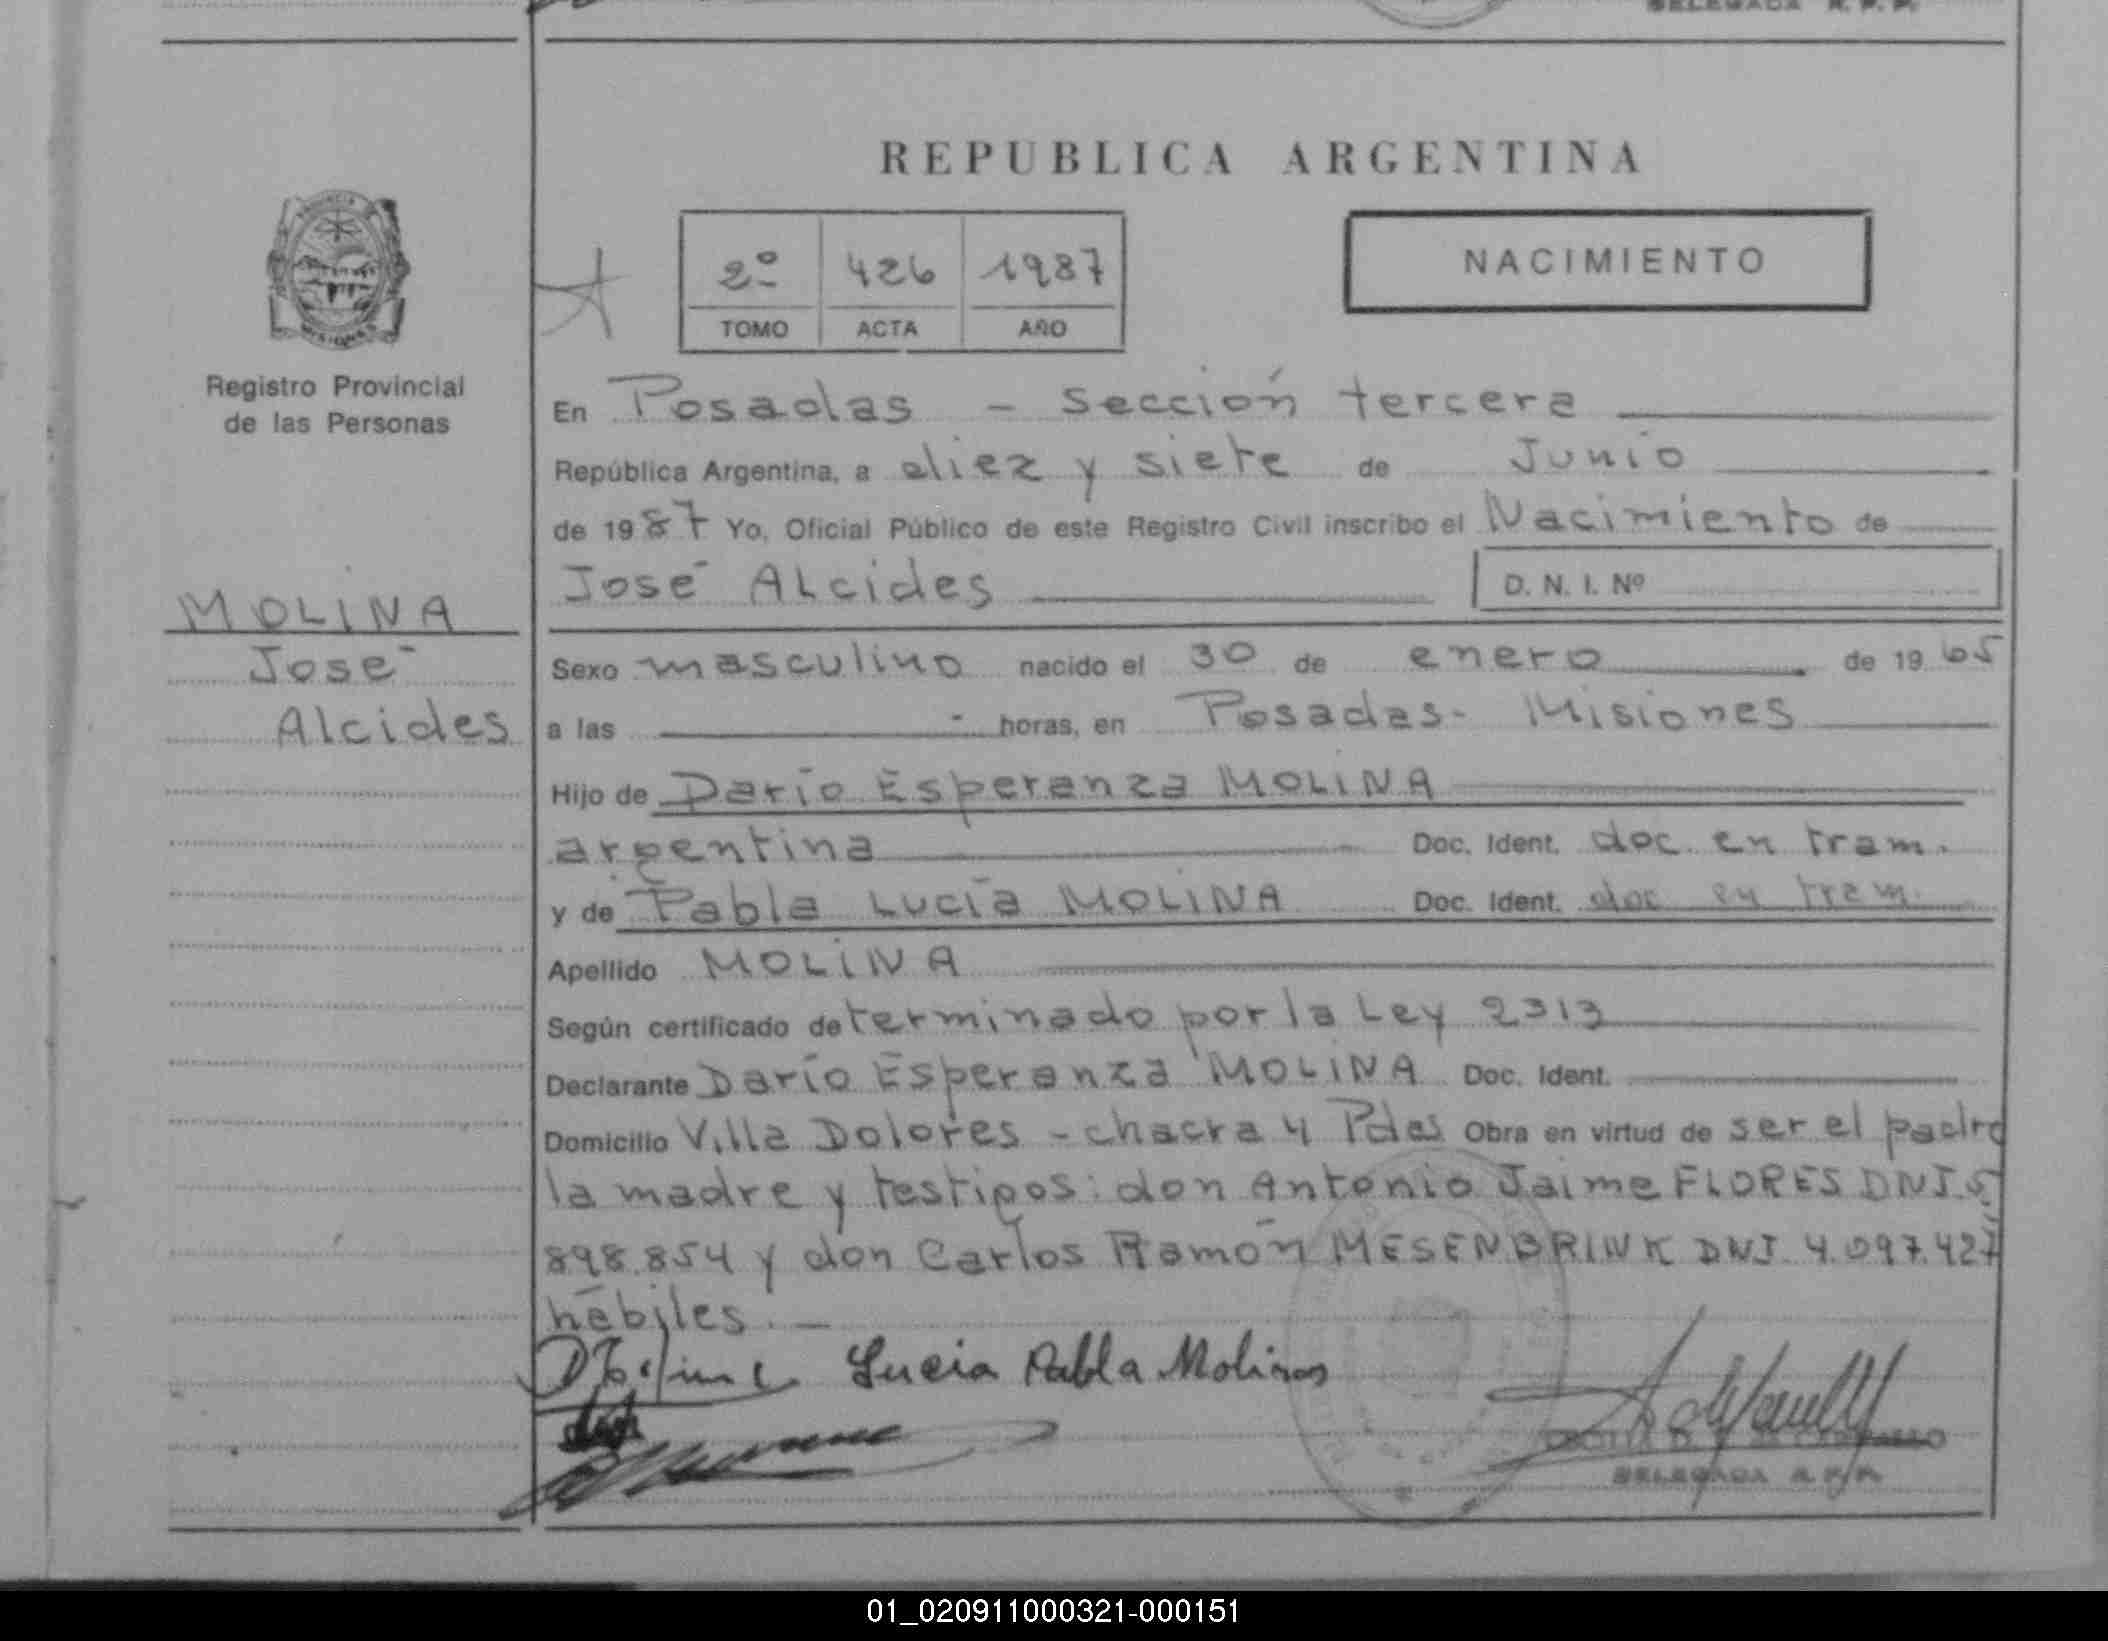 DELEGADA R. P. P.
REPUBLICA ARGENTINA
2º 426 1987
TOMO ACTA AÑO
NACIMIENTO
Registro Provincial
de las Personas
MOLINA
José
Alcides
En Posadas - Sección tercera
República Argentina, a diez y siete de Junio
de 1987 Yo, Oficial Público de este Registro Civil inscribo el Nacimiento de
José Alcides D. N. I. Nº
Sexo masculino nacido el 30 de enero de 1965
a las - horas, en Posadas - Misiones
Hijo de Darío Esperanza MOLINA
argentina Doc. Ident. doc. en tram.
y de Pabla Lucía MOLINA Doc. Ident. doc en tram.
Apellido MOLINA
Según certificado determinado por la Ley 2313
Declarante Darío Esperanza MOLINA Doc. Ident.
Domicilio Villa Dolores - chacra 4 Pdas Obra en virtud de ser el padre
la madre y testigos: don Antonio Jaime FLORES DNI. 5.
898.854 y don Carlos Ramón MESENBRINK DNI. 4.097.427
hábiles. -
Lucia Pabla Molinas
DELEGADA R. P. P.
01_020911000321-000151